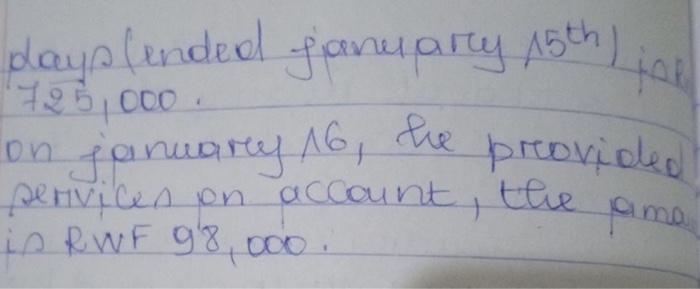 days (ended january 15th) is
725,000.
on january 16, he provided
services on account, the amo
is RWF 98,000.